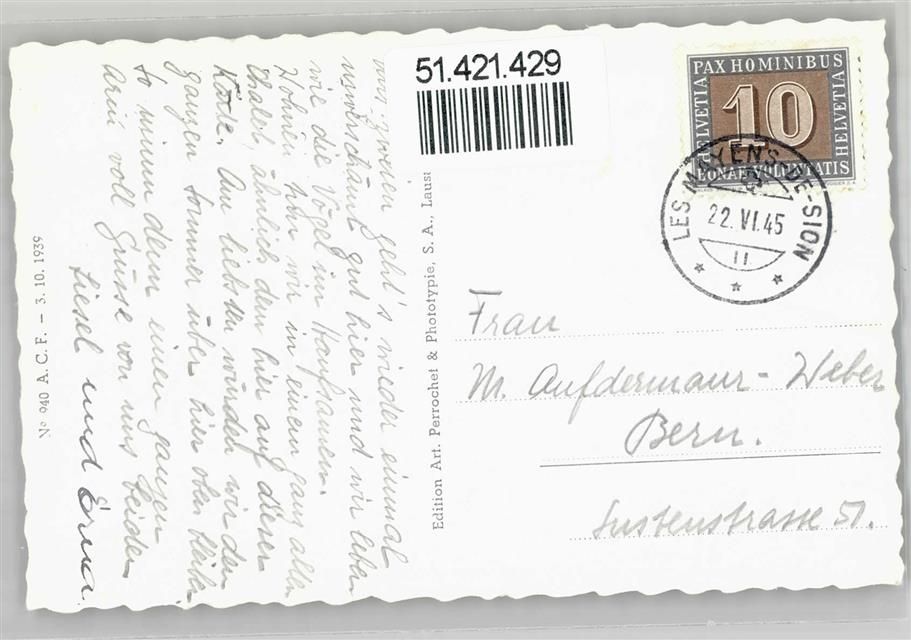 uns zweien geht's wieder einmal
unverschämt gut hier und wir leben
wie die Vögel im Hanfsamen.
Wohnen tun wir in einem ganz alten
Chalet, ähnlich dem hier auf dieser
Karte. Am liebsten würden wir den
ganzen Sommer über hier oben bleiben
So nimm denn einen ganzen
Arm voll Grüsse von uns beiden
Liesel und Erna.
No 940 A. C. F. – 3. 10. 1939
Edition Art. Perrochet & Phototypie, S. A., Laus
51.421.429
PAX HOMINIBUS
HELVETIA
10
HELVETIA
BONAE VOLUNTATIS
LES MAYENS-DE-SION
22. VI. 45
11
Frau
M. Aufdermaur-Weber
Bern.
Sustenstrasse 51.